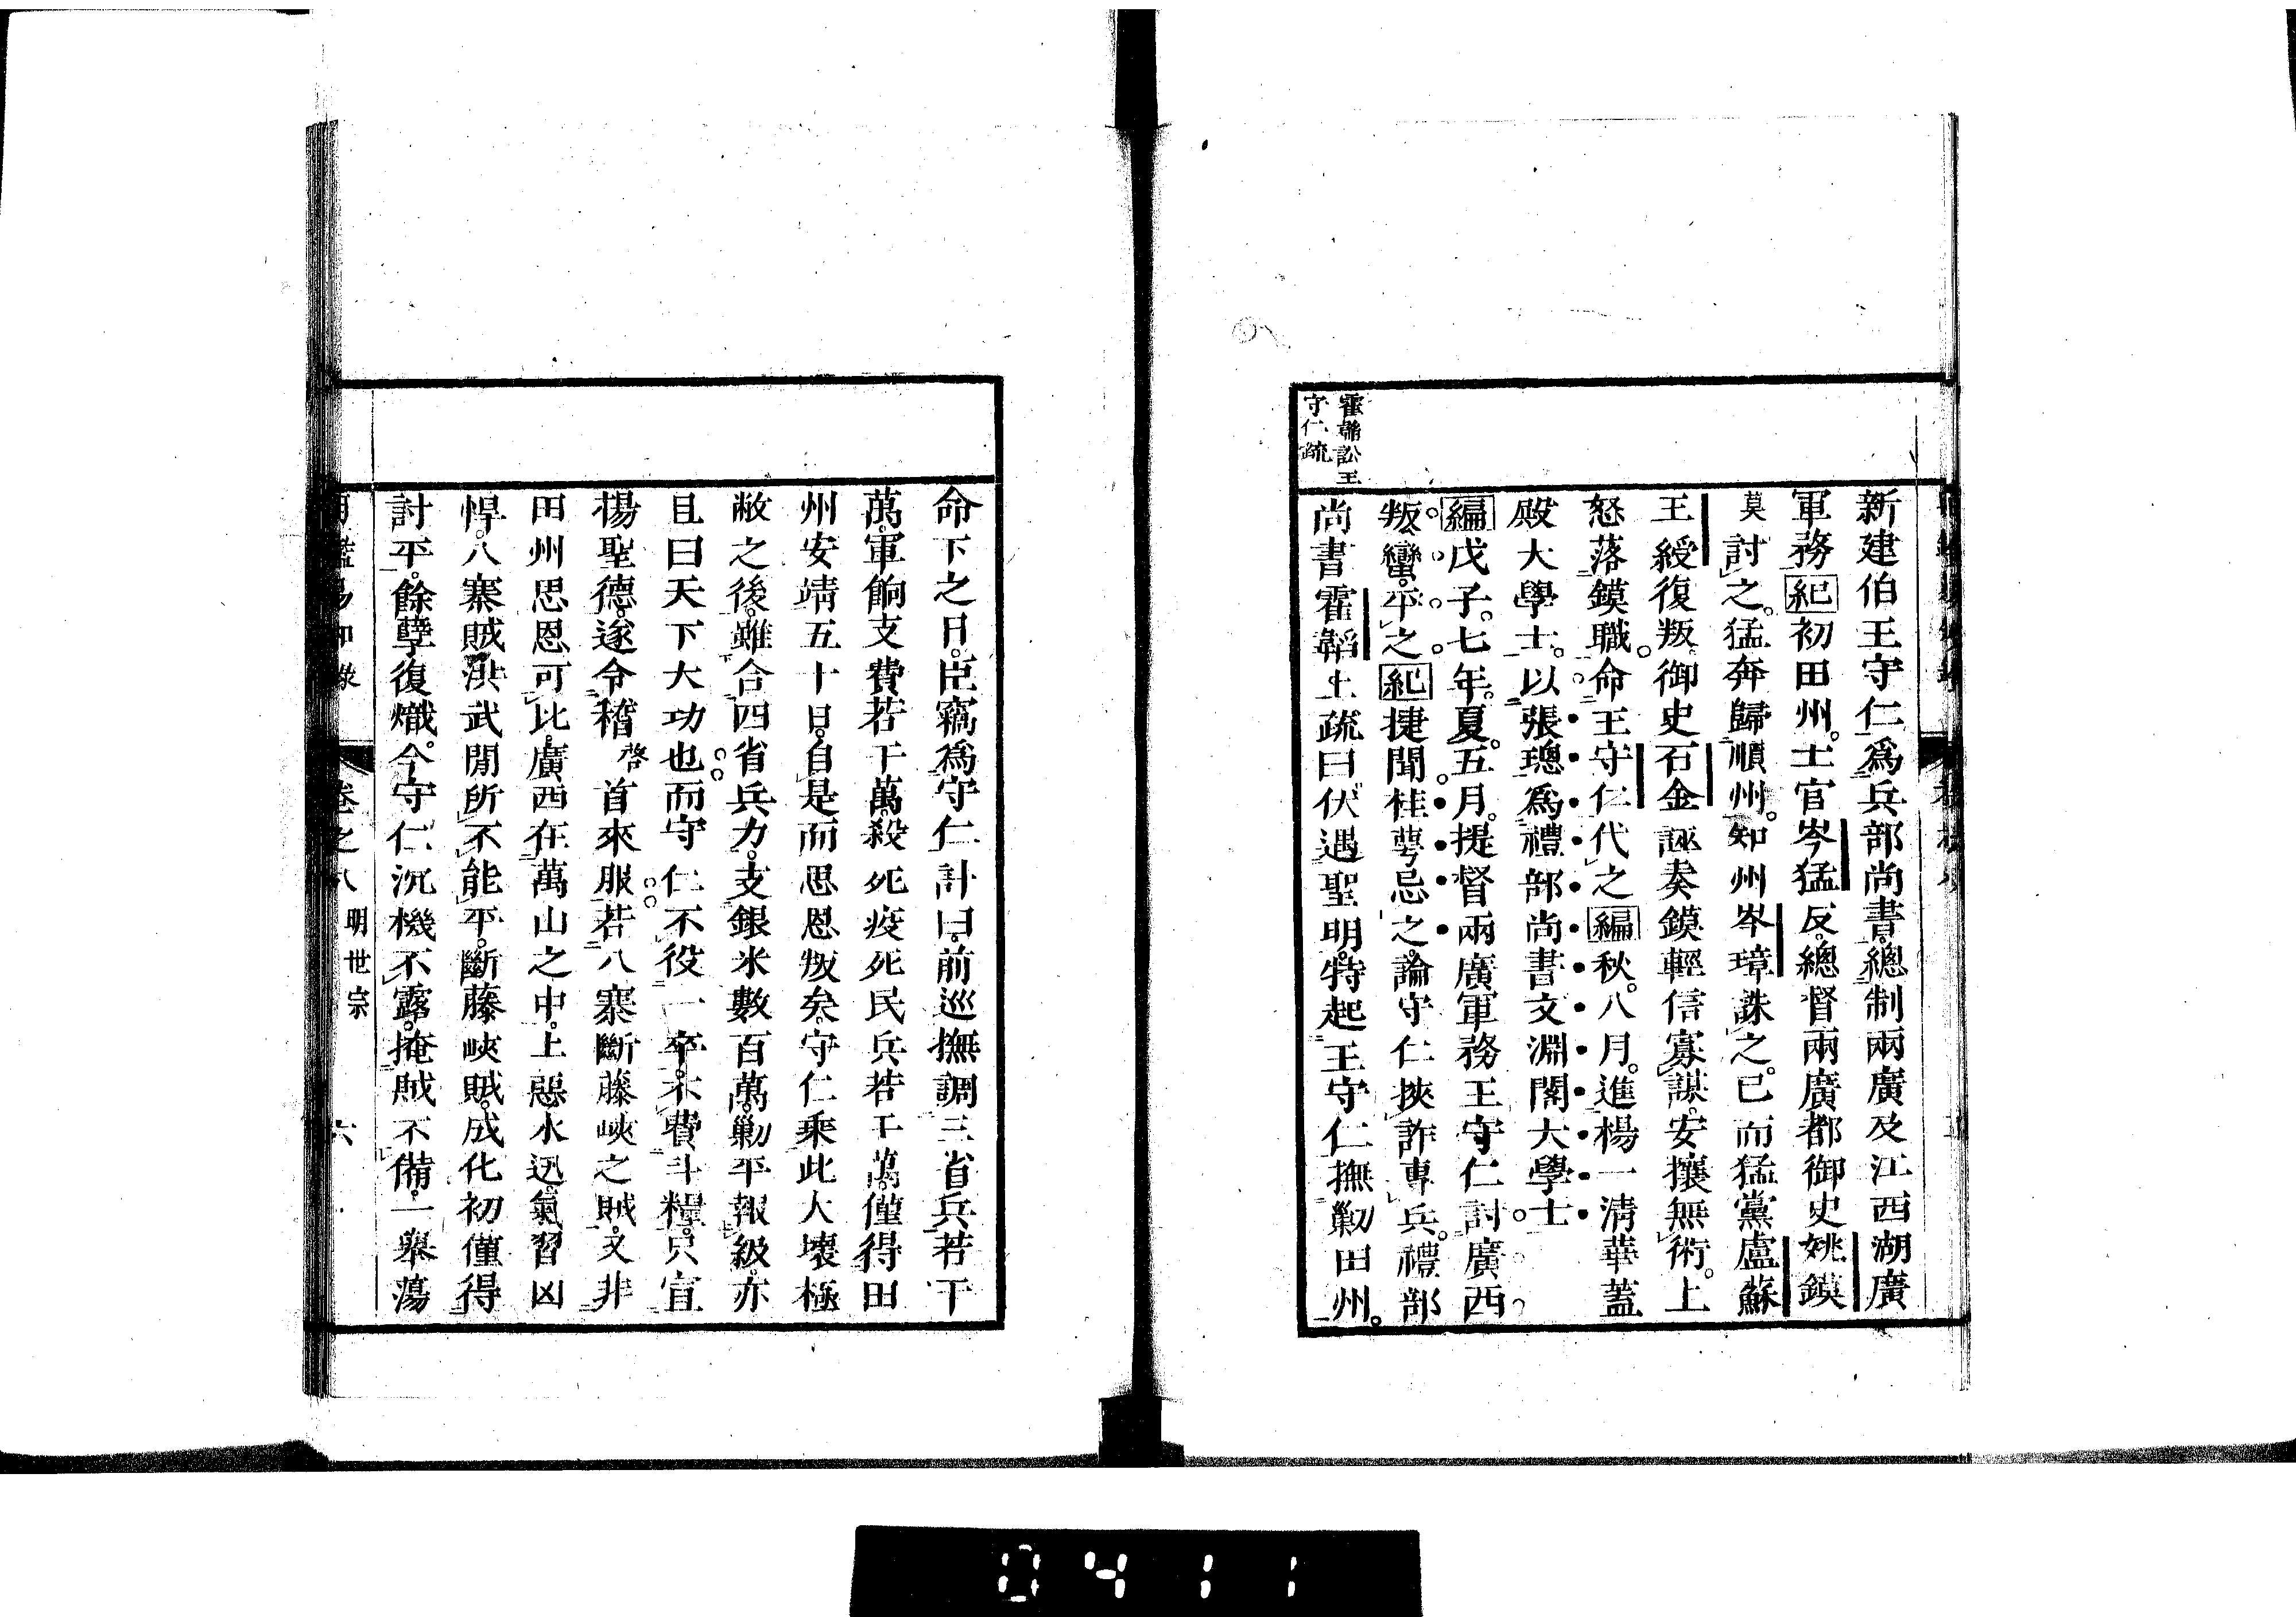 新建伯王守仁爲兵部尚書。總制兩廣及江西湖廣
軍務紀初田州。土官岑猛反。總督兩廣都御史姚鏌
莫討之。猛奔歸順州。知州岑璋誅之。已而猛黨盧蘇
王綬復叛。御史石金誣奏鏌輕信寡謀。安攘無術。上
怒落鏌職。命王守仁代之編秋。八月。進楊一淸華蓋
殿大學士。以張璁爲禮部尚書文淵閣大學士
編戊子。七年。夏。五月。提督兩廣軍務王守仁討廣西
叛蠻。平之紀捷聞桂萼忌之。論守仁挾詐專兵。禮部
霍韜訟王
守仁疏
尚書霍韜上疏曰伏遇聖明。特起王守仁撫勦田州。
命下之日。臣竊爲守仁計曰。前巡撫調三省兵若干
萬。軍餉支費若干萬。殺死疫死民兵若干萬。僅得田
州安靖五十日。自是而思恩叛矣。守仁乘此大壞極
敝之後。雖合四省兵力。支銀米數百萬。勦平報級。亦
且曰天下大功也。而守仁不役一卒。不費斗糧。只宣
揚聖德。遂令稽啓首來服。若八寨斷藤峽之賊。又非
田州思恩可比。廣西在萬山之中。上惡水迅。氣習凶
悍。八寨賊洪武閒所不能平。斷藤峽賊。成化初僅得
討平。餘孽復熾。今守仁沉機不露。掩賊不備。一舉蕩
卷之八 明世宗 六